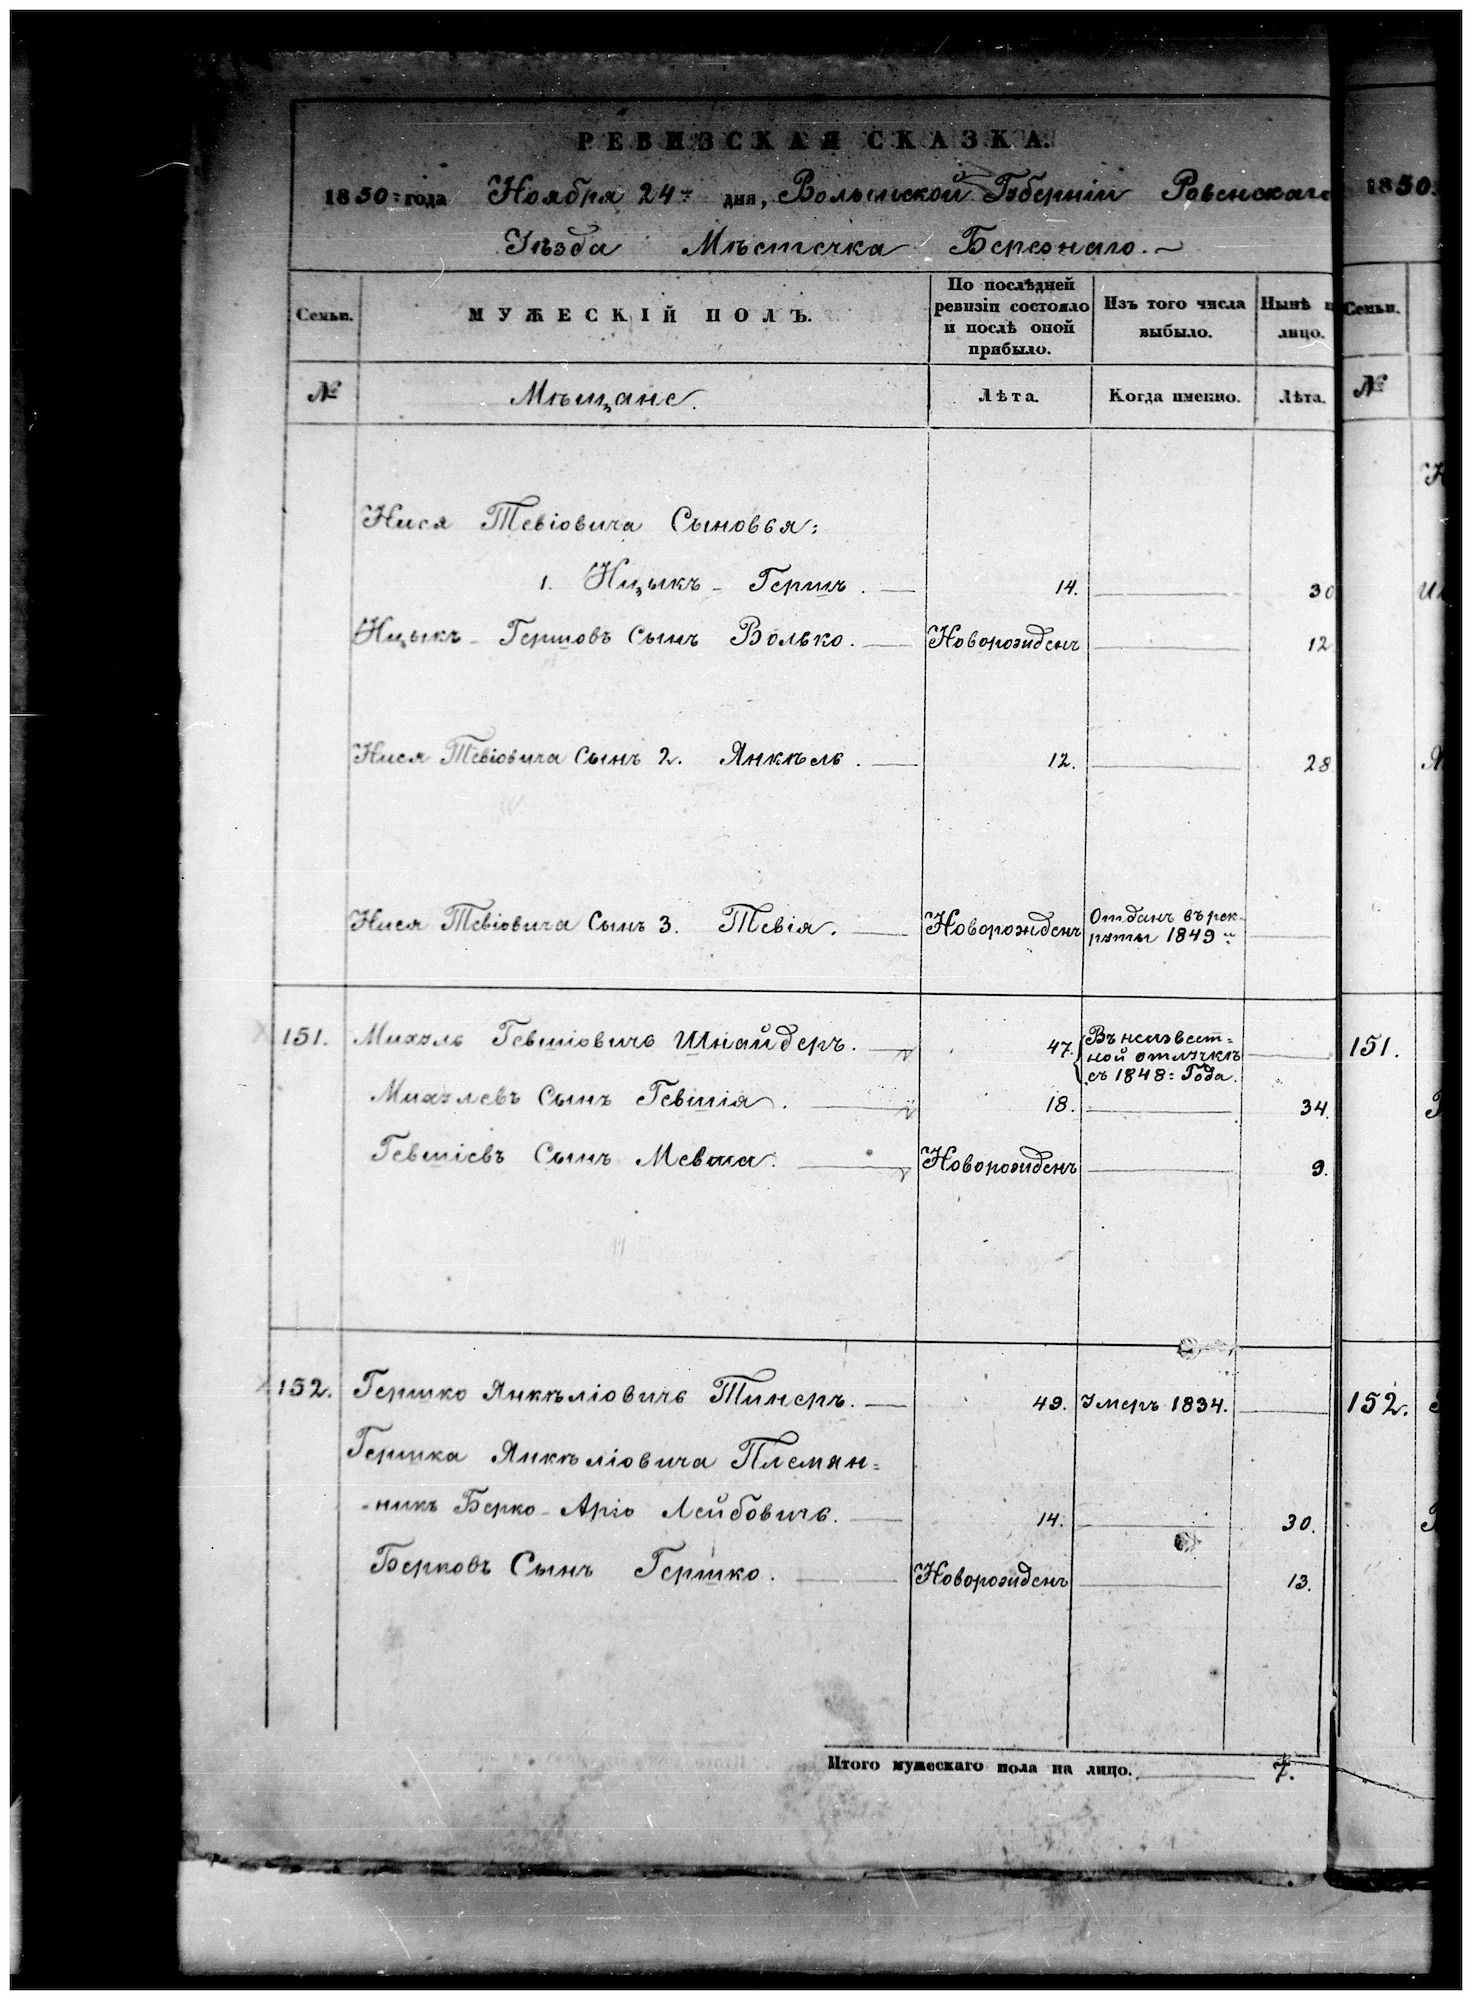 РЕВИЗСКАЯ СКАЗКА.
1850 = года Ноября 24 дня, Волынской Губерніи Ровенскаго
Уѣзда Мѣстечка Березнаго.
Семьи.
МУЖЕСКІЙ ПОЛЪ.
По послѣдней
ревизіи состояло
и послѣ оной
прибыло.
Изъ того числа
выбыло.
Нынѣ
лицо.
№
Мѣщане.
Лѣта.
Когда именно.
Лѣта.
Нися Тевіовича Сыновья:
1. Ицыкъ - Гершъ. 14. 30
Ицыкъ - Гершовъ Сынъ Волько. Новорожденъ 12
Нися Тевіовича Сынъ 2. Янкѣль. 12. 28
Нися Тевіовича Сынъ 3. Тевія. Новорожденъ Отданъ въ рек-
руты 1849
151. Михэль Гевшіовичъ Шнайдеръ. 47. Въ неизвест=
ной отлучкѣ
съ 1848: Года.
Михэлевъ Сынъ Гевшія. 18. 34.
Гевшіевъ Сынъ Мевша. Новорожденъ 9.
152. Гершко Янкѣліовичъ Тинеръ. 49. Умеръ 1834.
Гершка Янкѣліовича Племян=
-никъ Берко-Аріо Лейбовичъ. 14. 30.
Берковъ Сынъ Гершко. Новорожденъ 13.
Итого мужескаго пола на лицо. 7.
1850.
Семьи.
№
151.
152.